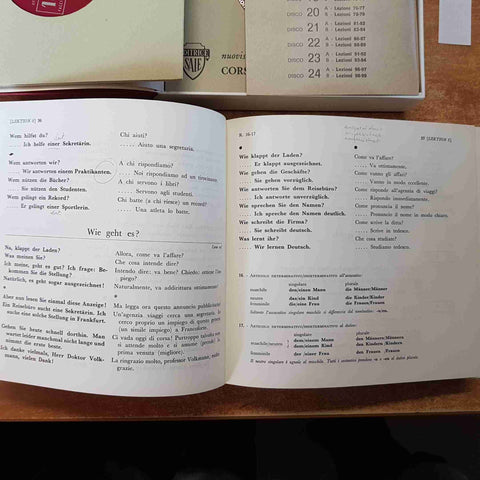 EDITRICE
SAIE
nuovis
CORS
DISCO 20 A - Lezioni 76-77
DISCO 21 A - Lezioni 81-82
DISCO 22 A - Lezioni
DISCO 23 A - Lezioni
DISCO 24 A - Lezioni 96-97
B - Lezioni 98-99
[LEKTION 5] 36
Wem hilfst du?
. . . . Ich helfe einer Sekretärin.
Wem antworten wir?
. . . . Wir antworten einem Praktikanten.
Wem nützen die Bücher?
. . . . Sie nützen den Studenten.
Wem gelingt ein Rekord?
. . . . Er gelingt einer Sportlerin.
Chi aiuti?
. . . . . Aiuto una segretaria.
A chi rispondiamo?
. . . . . Noi rispondiamo ad un
A chi servono i libri?
. . . . . Servono agli studenti.
Chi batte (a chi riesce) un record?
. . . . . Una atleta lo batte.
Wie geht es?
Come va?
Na, klappt der Laden?
Was meinen Sie?
Ich meine, geht es gut? Ich frage: Be-
kommen Sie die Stellung?
Natürlich, es geht sogar ausgezeichnet!
Aber nun lesen Sie einmal diese Anzeige!
Ein Reisebüro sucht eine Sekretärin. Ich
suche eine Stellung in Frankfurt.
Gehen Sie heute schnell dorthin. Man
wartet leider manchmal nicht lange und
nimmt die erste beste.
Ich danke vielmals, Herr Doktor Volk-
mann, vielen Dank!
Allora, come va l'affare?
Che cosa intende dire?
Intendo dire: va bene? Chiedo: ottiene l'im-
piego?
Naturalmente, va addirittura ottimamente!
Ma legga ora questo annuncio pubblicitario!
Un'agenzia viaggi cerca una segretaria. Io
cerco proprio un impiego di questo genere
(un simile impiego) a Francoforte.
Ci vada oggi di corsa! Purtroppo talvolta non
si attende molto e si assume (prende) la
prima venuta (migliore).
La ringrazio molto, professor Volkmann, molte
grazie!
R. 16-17
37 [LEKTION 5]
Wie klappt der Laden?
. . . . Er klappt ausgezeichnet.
Wie gehen die Geschäfte?
. . . . Sie gehen vorzüglich.
Wie antworten Sie dem Reisebüro?
. . . . Ich antworte unverzüglich.
Wie sprechen Sie den Namen?
. . . . Ich spreche den Namen deutlich.
Wie schreibt die Firma?
. . . . Sie schreibt deutsch.
Was lernt ihr?
. . . . Wir lernen Deutsch.
Come va l'affare?
. . . . . Va ottimamente.
Come vanno gli affari?
. . . . . Vanno in modo eccellente.
Come risponde all'agenzia di viaggi?
. . . . . Rispondo immediatamente.
Come pronuncia il nome?
. . . . . Pronuncio il nome in modo chiaro.
Come scrive la ditta?
. . . . . Scrive in tedesco.
Che cosa studiate?
. . . . . Studiamo il tedesco.
16. ARTICOLO DETERMINATIVO/INDETERMINATIVO all'accusativo:
singolare plurale
maschile den/einen Mann die Männer/Männer
neutro das/ein Kind die Kinder/Kinder
femminile die/eine Frau die Frauen/Frauen
17. ARTICOLO DETERMINATIVO/INDETERMINATIVO al dativo:
singolare plurale
maschile/neutro dem/einem Mann den Männern/Männern
dem/einem Kind den Kindern/Kindern
femminile der/einer Frau den Frauen/Frauen